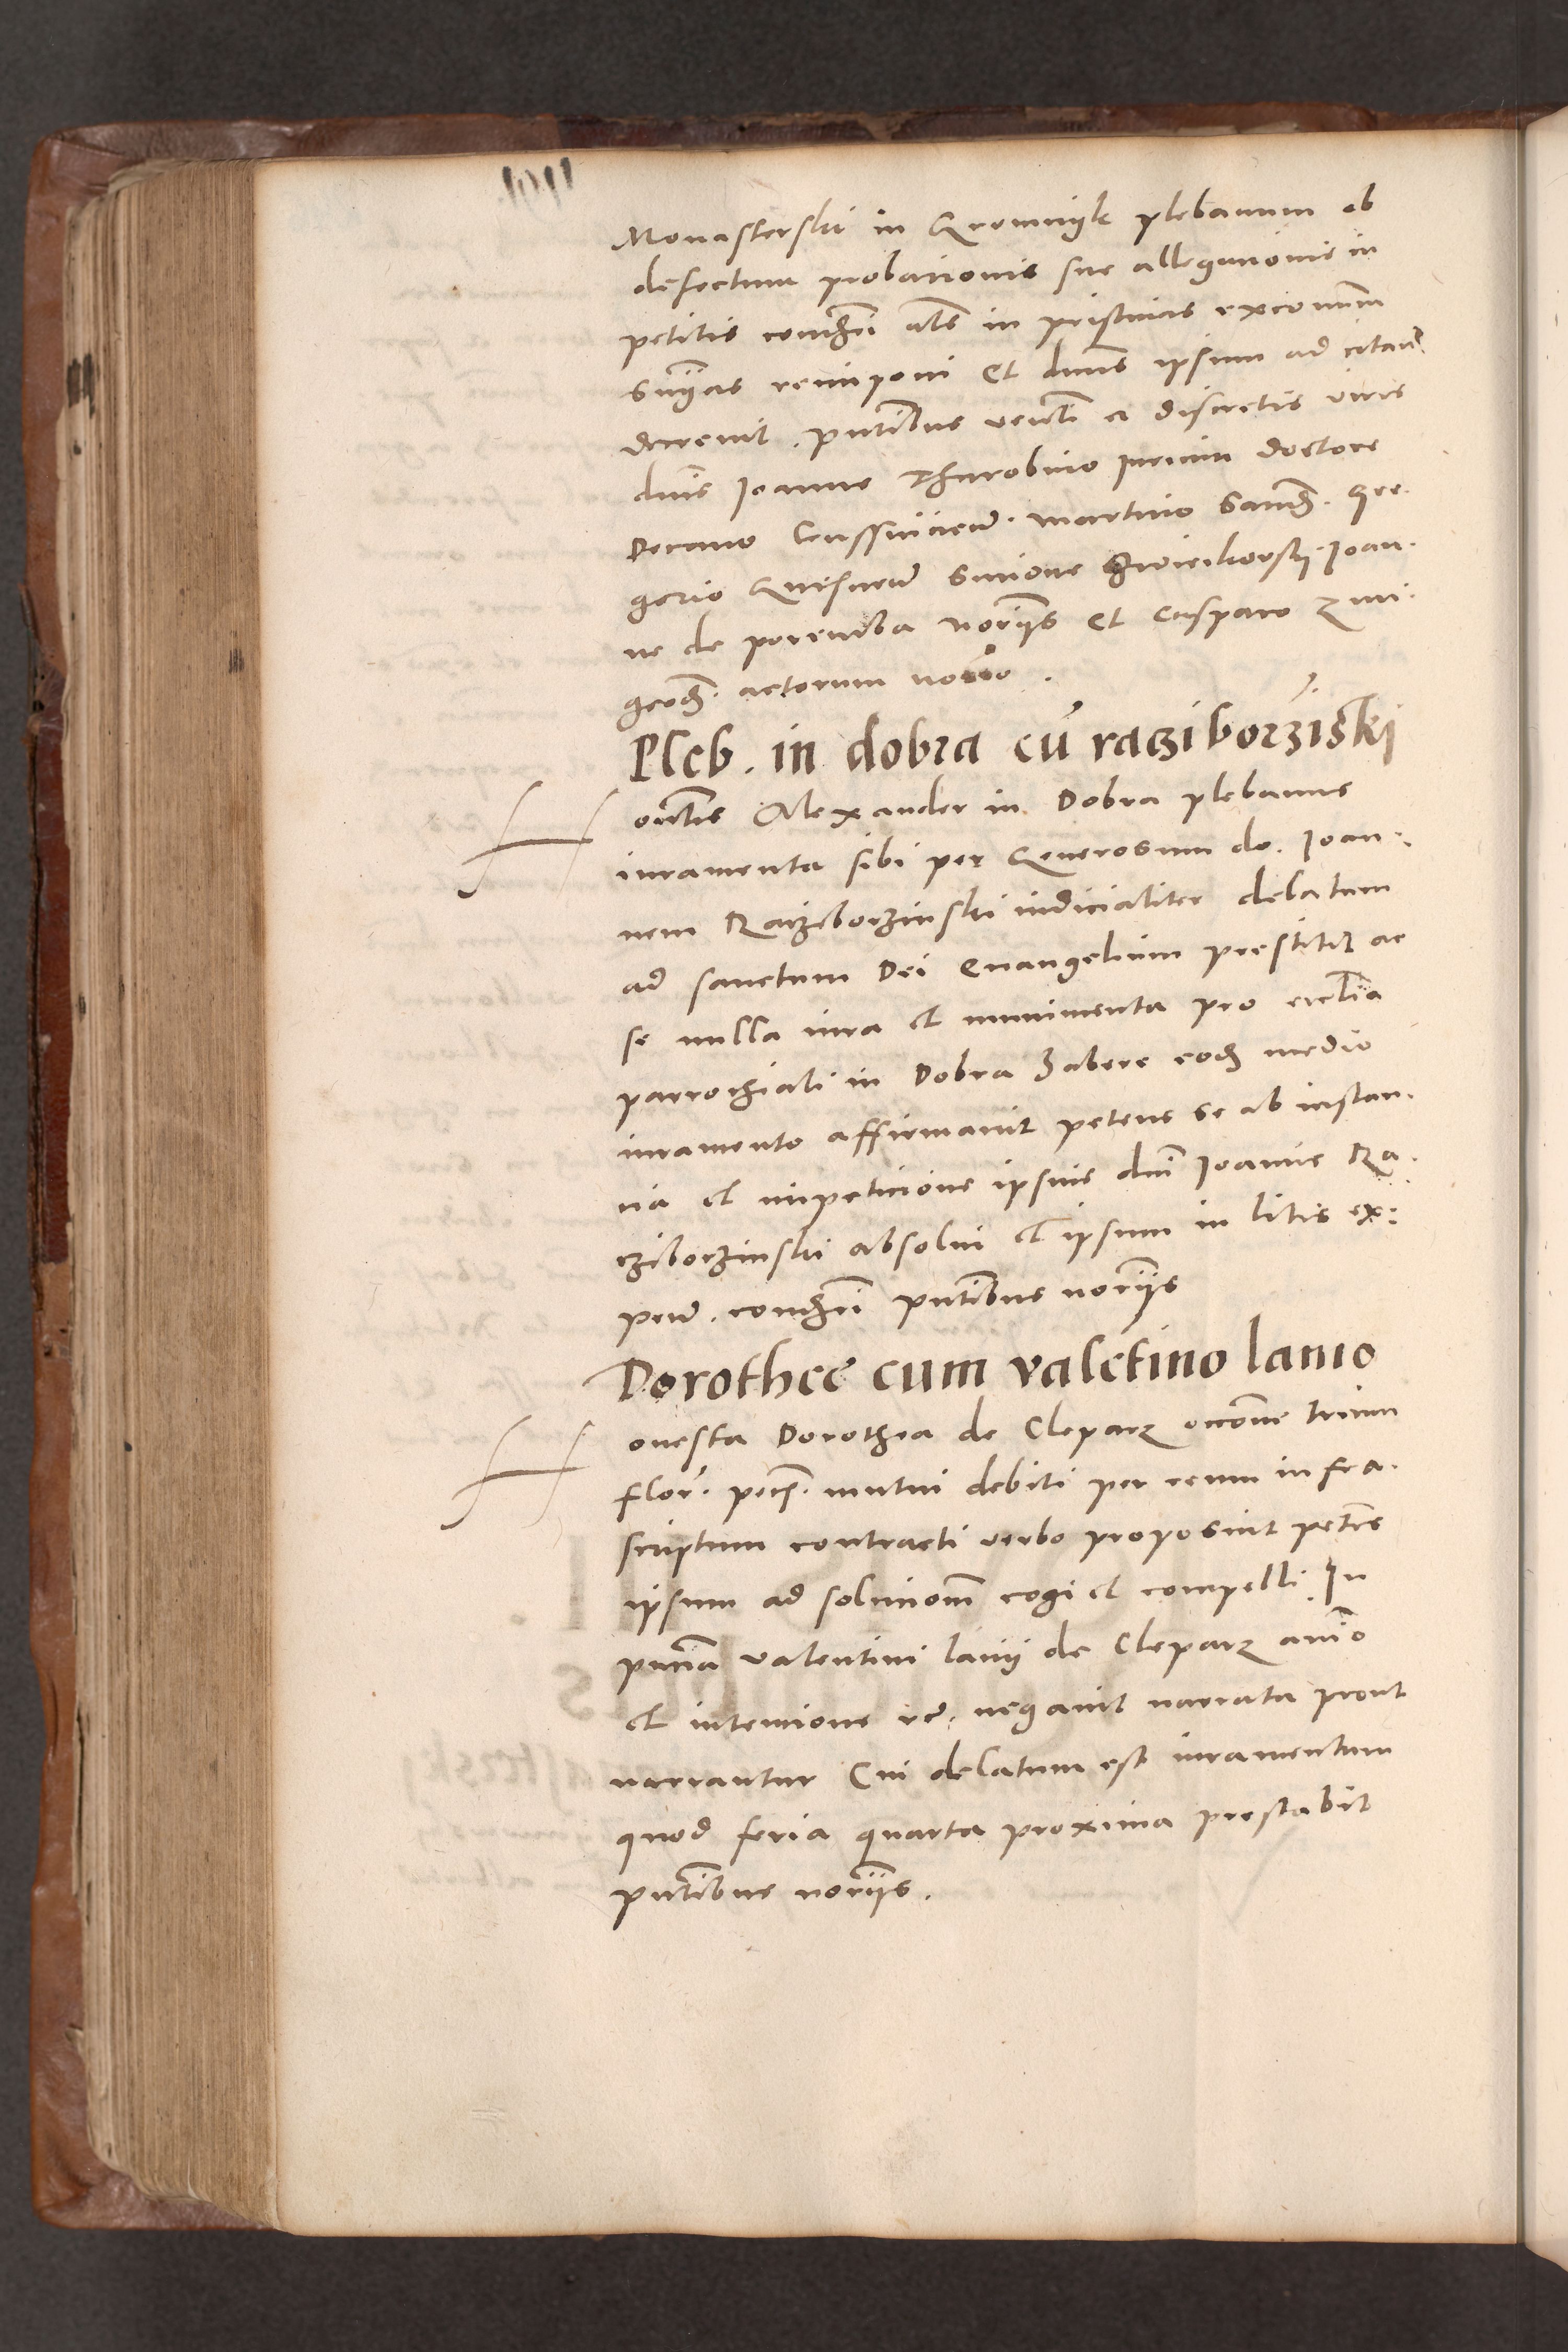 Monasterski in Gromnijk plebanum ob
defectum probationis sue allegationis in
petitis condemnari als in pristinas excommu
snias reimponi Et dnus ipsum ad citand
decrevit. pntibus venli et discretis viris
dnis Joanne Tharobino iurium doctore
Decano Cussuicien. martino Sand. Gre
gorio Quisnen Simone Gwieikorsky. Joan.
ne de poremba notarijs et Casparo Zmi.
grod. actorum notario.
Pleb. in dobra cu raczi borziski
Honlis Alexander in Dobra plebanus
iuramenta sibi per Generosum do. Joan.
nem Raczborzinski iudicialiter delatum
ad sanctum Dei Evangelium prestitit ac
se nulla iura et munimenta pro ecclia
parrochiali in Dobra habere eodem medio
iuramento affirmavit petens se ab instan.
tia et impeticione ipsius dni Joannis Ra.
cziborzinski absolvi et ipsum in litis ex:
pen. condemnari pntibus notarijs
Dorothee cum valetino lanio
Honesta Dorothea de Cleparz occone trium
flor. pec. mutui debiti per reum infra.
scriptum contracti verbo proposuit petens
ipsum ad solucionem cogi et compelli. In
pntia valentini lanij de Cleparz animo
et intencione rc. negavit narrata prout
narrantur Cui delatum est iuramentum
quod feria quarta proxima prestabit
pntibus notarijs.